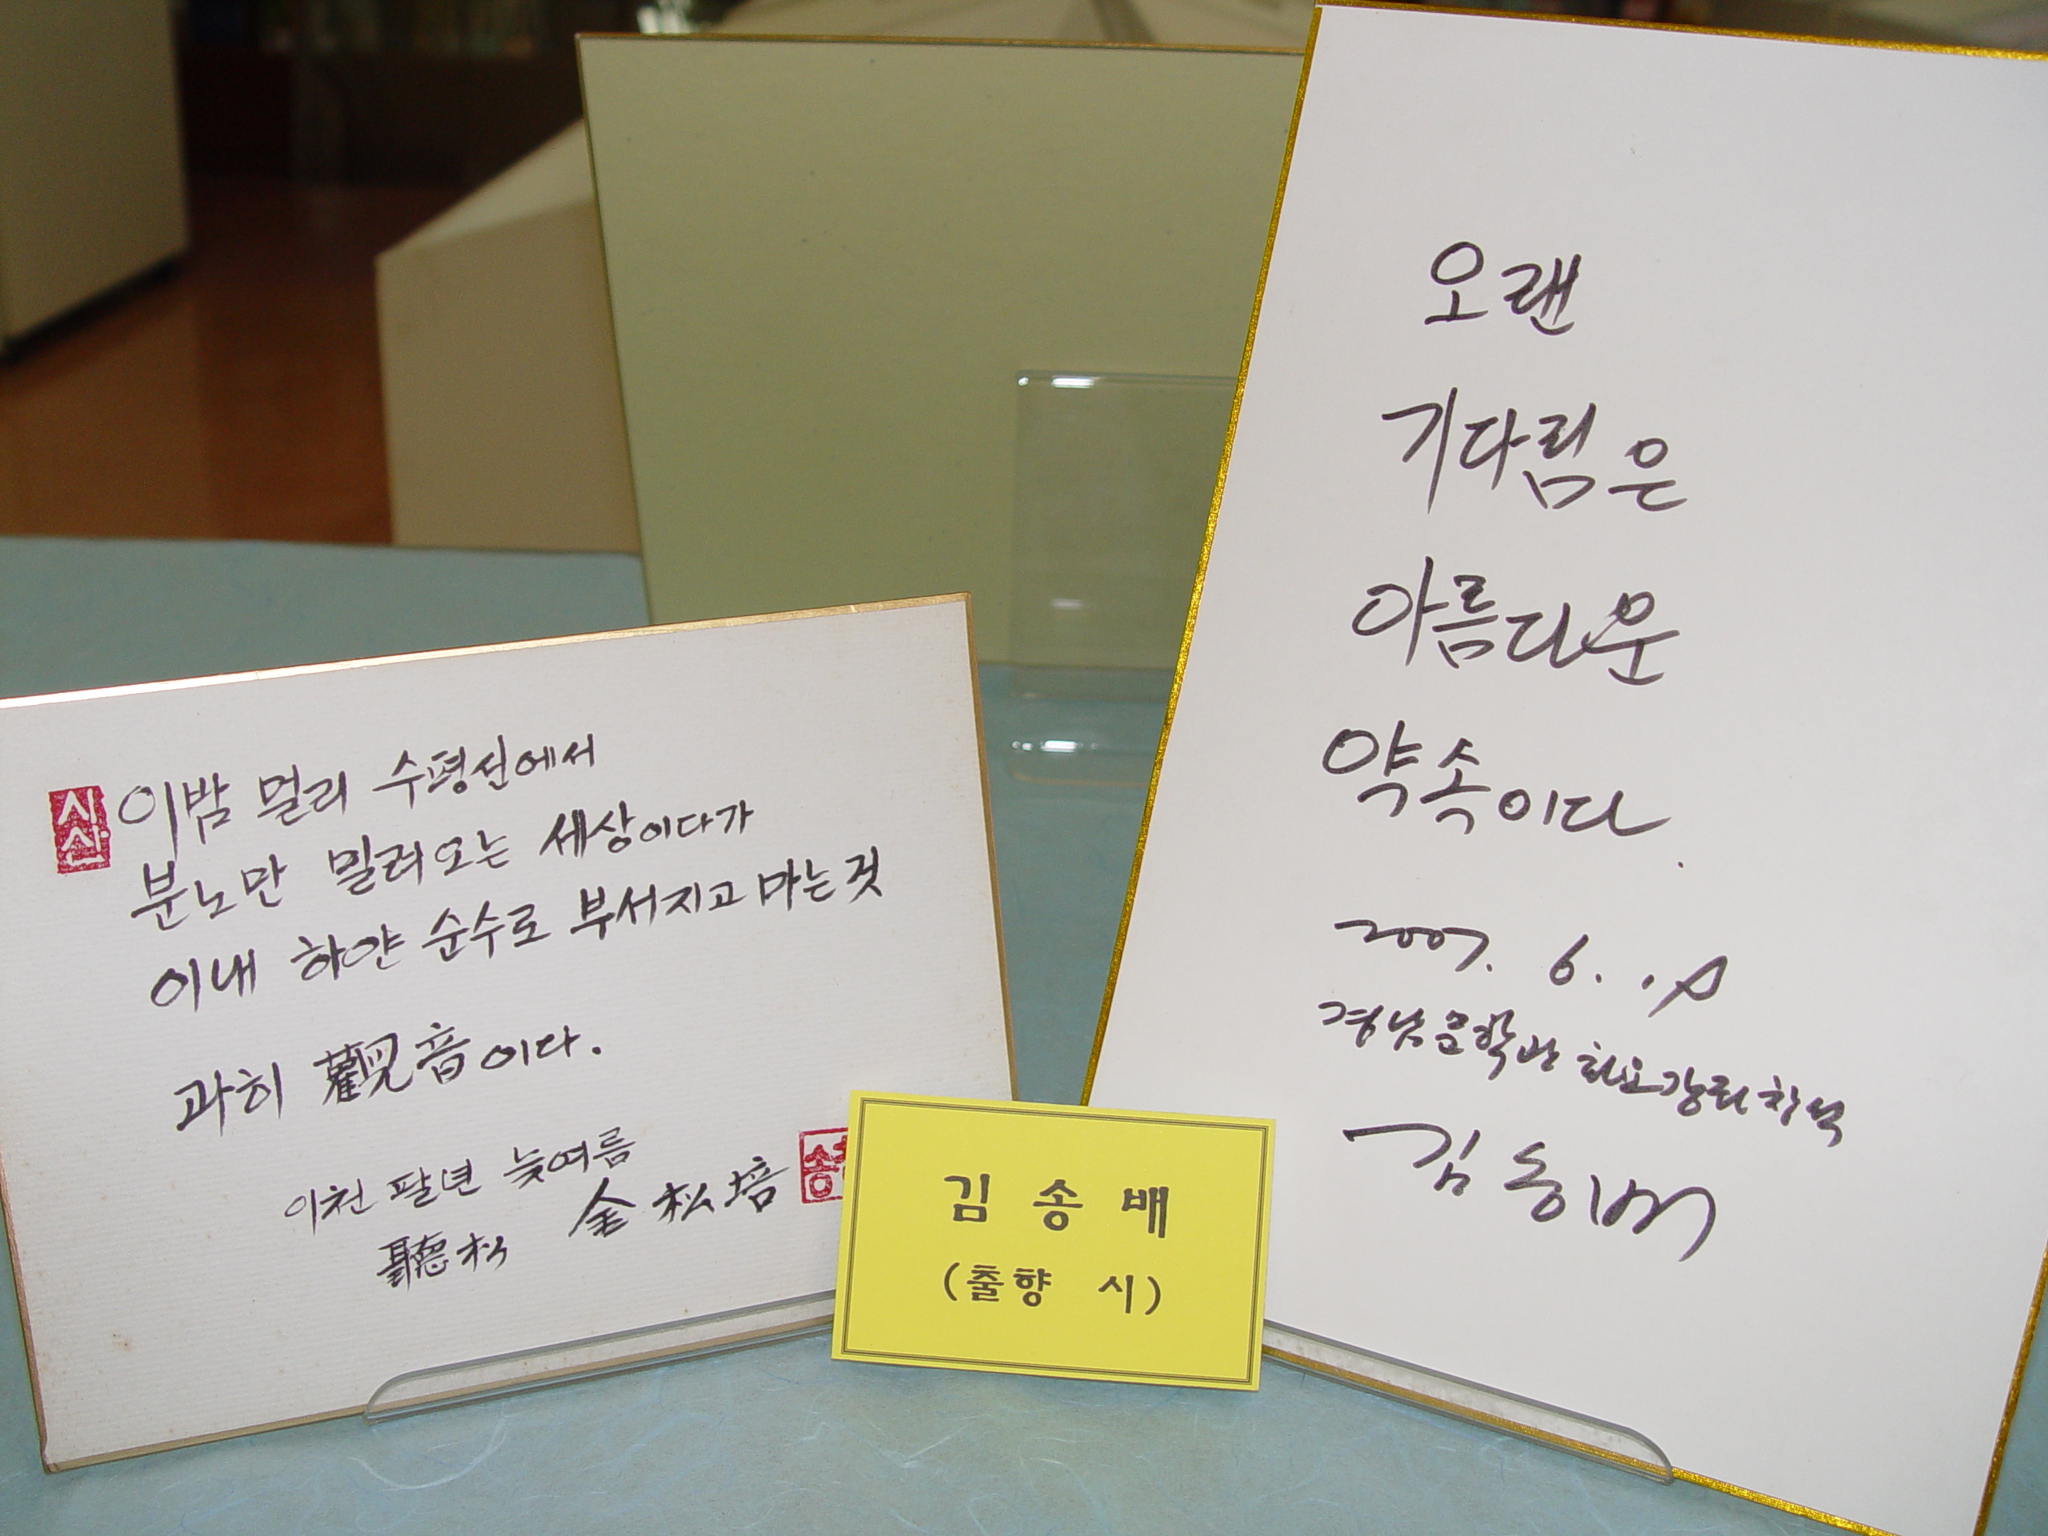 시신
이밤 멀리 수평선에서
분노만 밀려오는 세상이다가
이내 하얀 순수로 부서지고 마는것
과히 觀音이다.
이천 팔년 늦여름
聽松 金松培
송
김 송 배
(출향 시)
오랜
기다림은
아름다운
약속이다.
2007. 6.
경남문학관
김송배